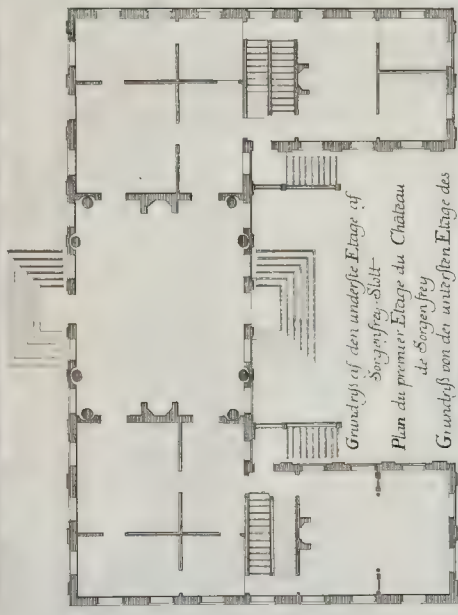 Grundryß af den underste Etage af
Sorgenfrey-Slott
Plan du premier Etage du Château
de Sorgenfrey
Grundriß von der untersten Etage des